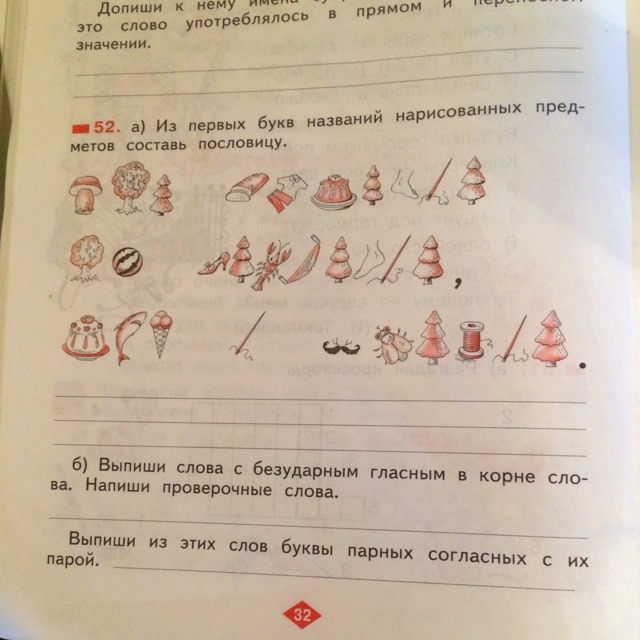 Допиши к нему имена
это слово употреблялось в прямом и переносном
значении.
52. а) Из первых букв названий нарисованных пред-
метов составь пословицу.
,
.
б) Выпиши слова с безударным гласным в корне сло-
ва. Напиши проверочные слова.
Выпиши из этих слов буквы парных согласных с их
парой.
32